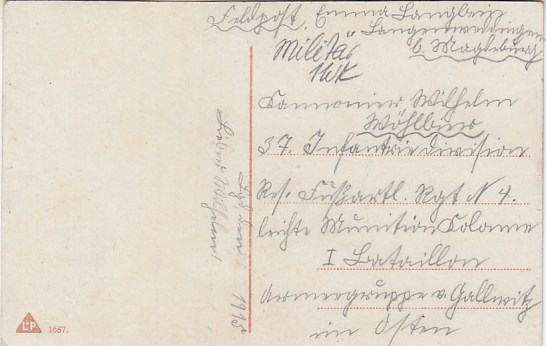 Feldpost. Emma Langbein
Langenweddingen
b. Magdeburg
Militär
Kanonier Wilhelm
Wöhlbier
37. Infantriedivision
Res. Fußartl. Rgt N 4.
leichte Munition Colonne
I Bataillon
Armeegruppe v. Gallwitz
im Osten
Lieber Wilhelm!
1915
LP 1687.